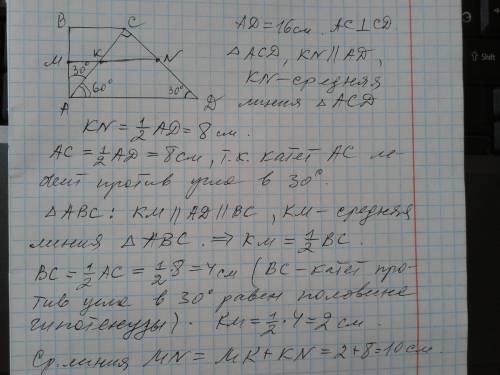 B C
AD=16см, AC⊥CD
M K N
△ACD, KN||AD,
30°
KN-средняя
60° 30°
A D
линия △ACD
KN = 1/2 AD = 8 см.
AC = 1/2 AD = 8 см, т.к. катет AC ле-
жит против угла в 30°.
△ABC: KM||AD||BC, KM-средняя
линия △ABC. ⇒ KM = 1/2 BC.
BC = 1/2 AC = 1/2 · 8 = 4 см (BC-катет про-
тив угла в 30° равен половине
гипотенузы). KM = 1/2 · 4 = 2 см.
Ср. линия MN = MK + KN = 2 + 8 = 10 см.